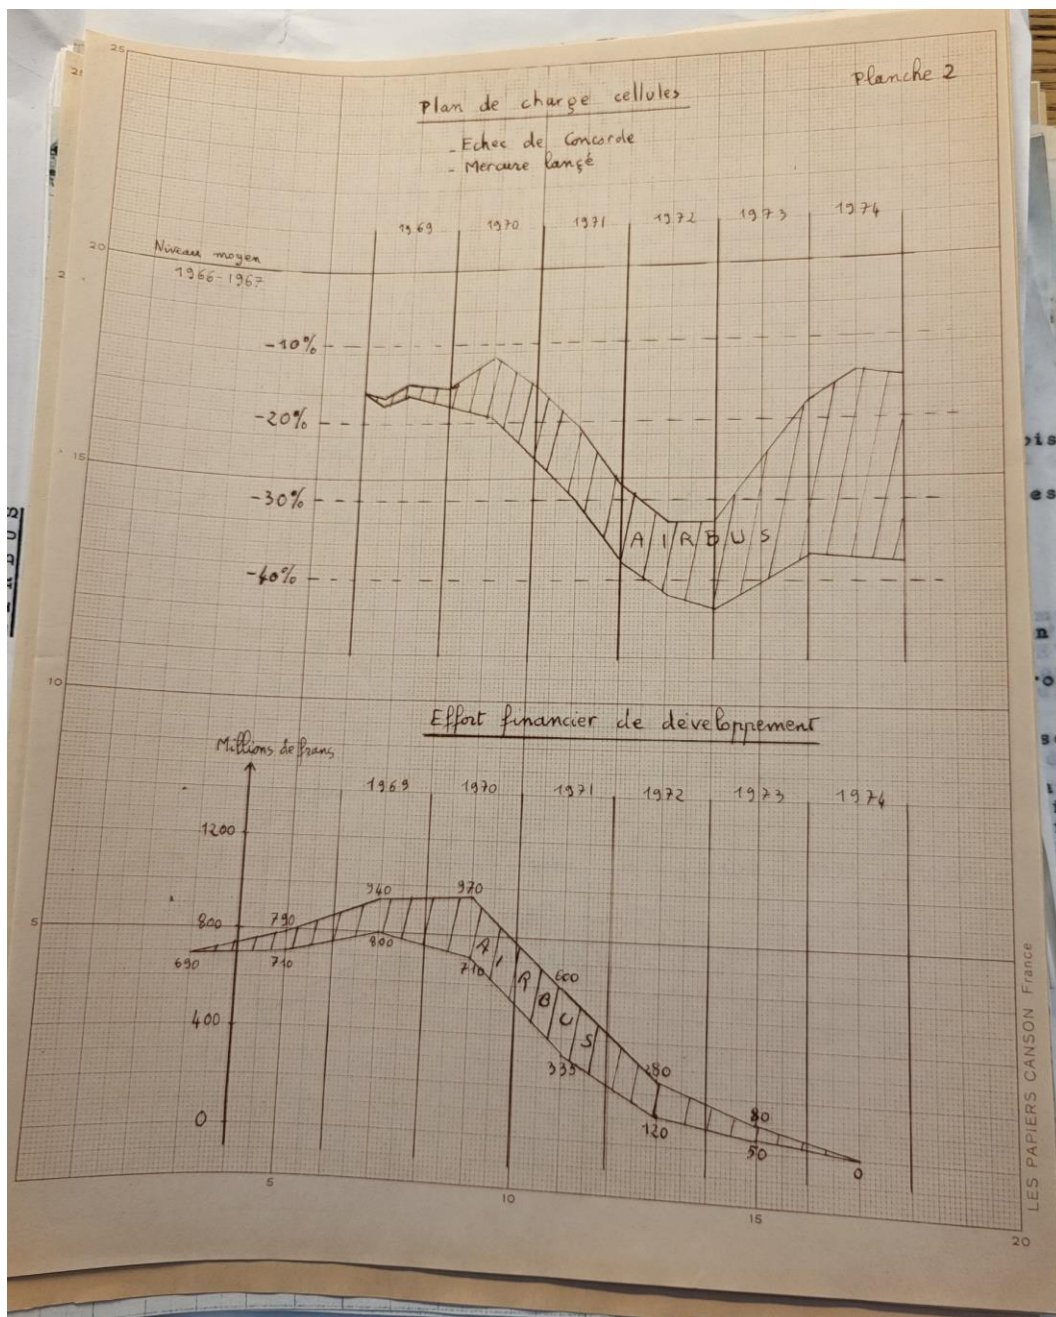 25
Planche 2
Plan de charge cellules
- Echec de Concorde
- Mercure lançé
1969 1970 1971 1972 1973 1974
20
Niveau moyen
1966-1967
-10%
-20%
15
-30%
AIRBUS
-40%
10
Effort financier de développement
Millions de francs
1969 1970 1971 1972 1973 1974
1200
940 970
5
800 790
690 710 800 710
AIRBUS
600
400
333 280
0
120 80
50 0
5
10
15
20
LES PAPIERS CANSON France
ois
es
n